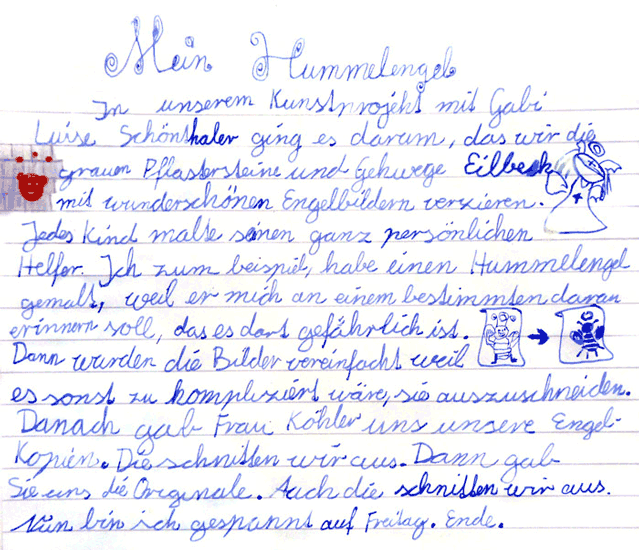 Mein Hummelengel
In unserem Kunstprojekt mit Gabi
Luise Schönthaler ging es darum, das wir die
grauen Pflastersteine und Gehwege Eilbeck
mit wunderschönen Engelbildern verzieren.
Jedes Kind malte seinen ganz persönlichen
Helfer. Ich zum beispiel, habe einen Hummelengel
gemalt, weil er mich an einem bestimmten daran
erinnern soll, das es dort gefährlich ist.
Dann wurden die Bilder vereinfacht weil
es sonst zu kompliziert wäre, sie auszuschneiden.
Danach gab Frau Köhler uns unsere Engel-
Kopien. Die schnitten wir aus. Dann gab
Sie uns die Originale. Auch die schnitten wir aus.
Nun bin ich gespannt auf Freitag. Ende.